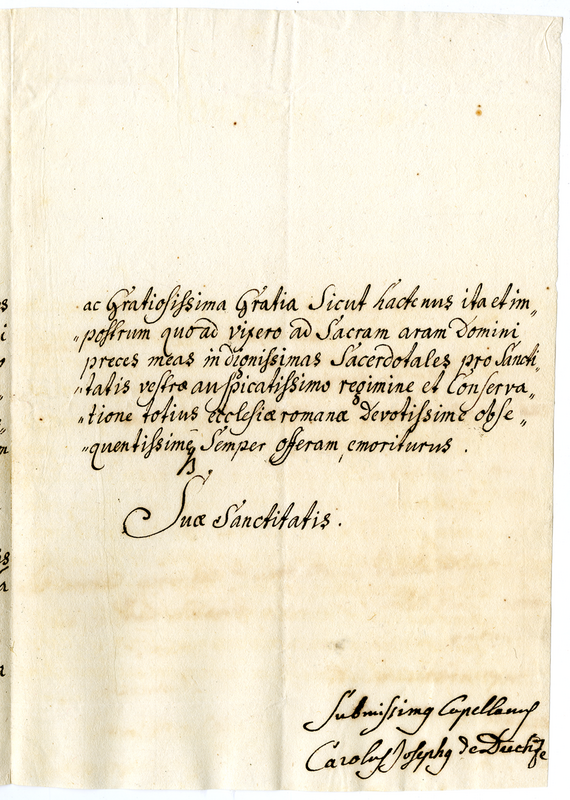 ac Gratiosissima Gratia Sicut hactenus ita et im„
„postrum quoad vixero ad Sacram aram Domini
preces meas indignissimas Sacerdotales pro Sancti„
„tatis vestræ auspicatissimo regimine et Conserva„
„tione totius ecclesiæ romanæ Devotissime obse„
„quentissime Semper offeram, emoriturus .
Suæ Sanctitatis .
Submissimq Capellanus
Carolus Josephq de